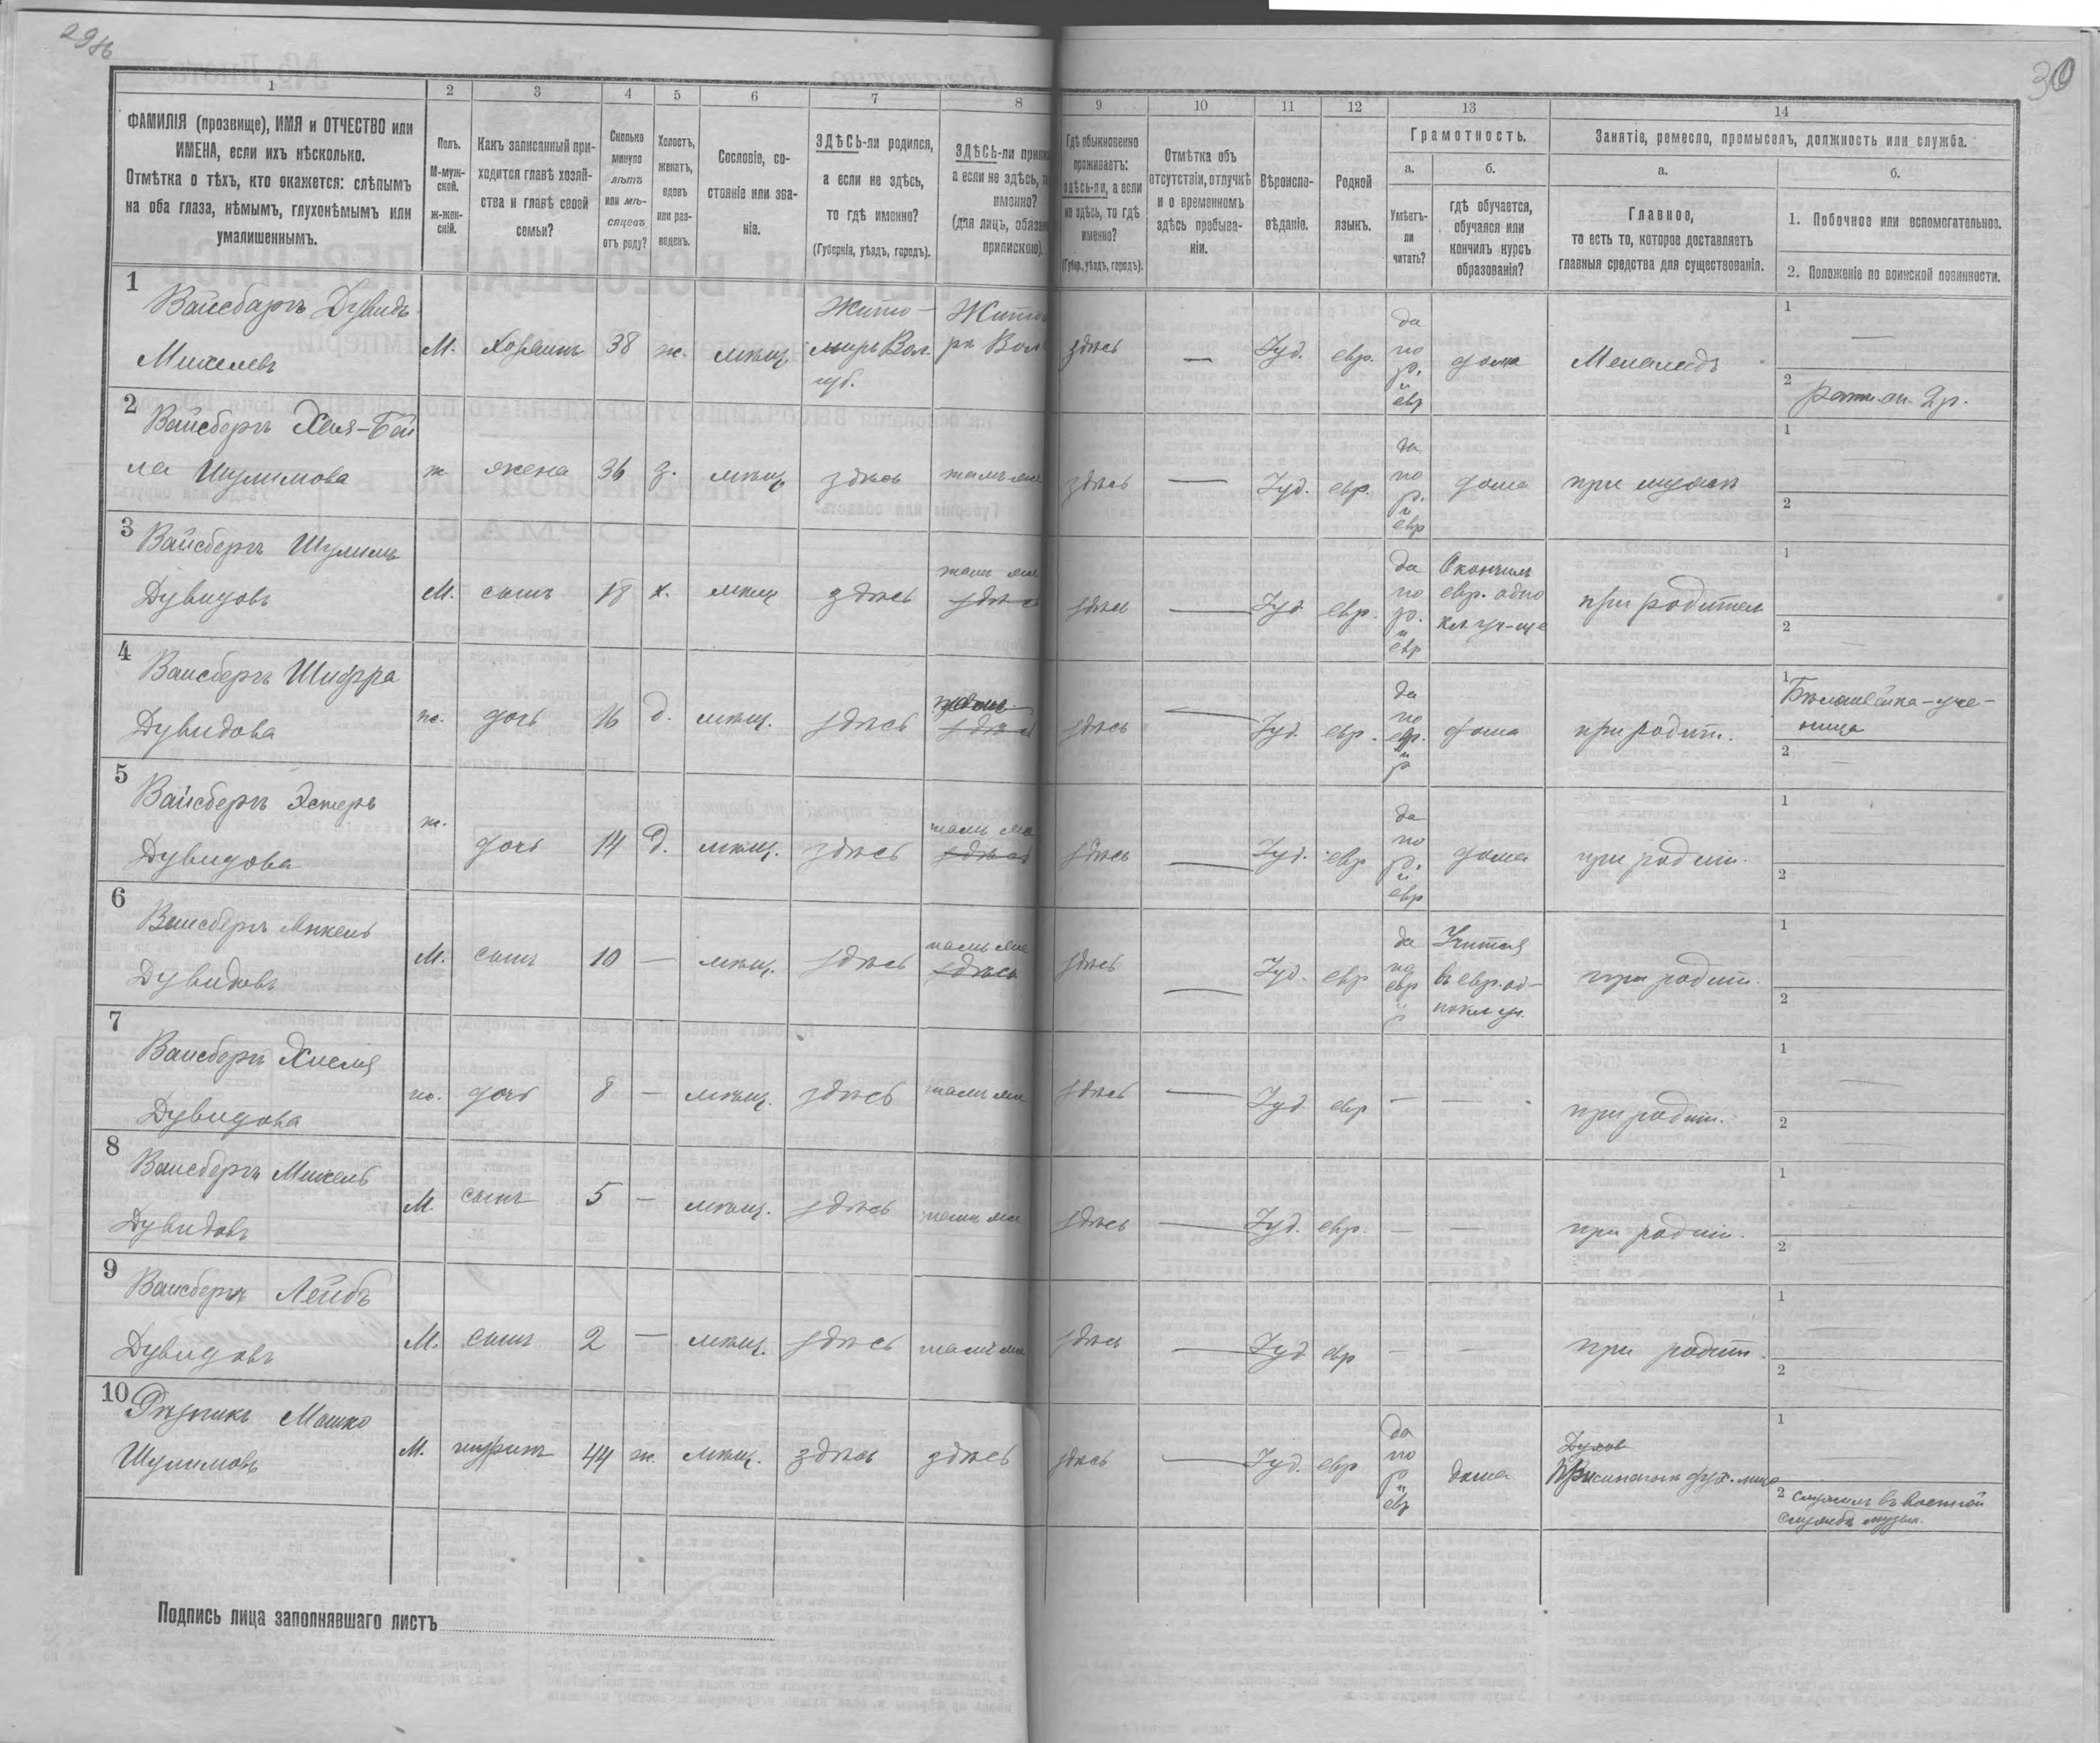 29об
30
1
2
3
4
5
6
7
8
9
10
11
12
13
14
ФАМИЛІЯ (прозвище), ИМЯ и ОТЧЕСТВО или
ИМЕНА, если ихъ нѣсколько.
Отмѣтка о тѣхъ, кто окажется: слѣпымъ
на оба глаза, нѣмымъ, глухонѣмымъ или
умалишеннымъ.
Полъ.
М-муж-
ской.
Ж-жен-
скій.
Какъ записанный при-
ходится главѣ хозяй-
ства и главѣ своей
семьи?
Сколько
минуло
лѣтъ
или мѣ-
сяцевъ
отъ роду?
Холостъ,
женатъ,
вдовъ
или раз-
веденъ.
Сословіе, со-
стояніе или зва-
ніе.
ЗДѢСЬ-ли родился,
а если не здѣсь,
то гдѣ именно?
(Губернія, уѣздъ, городъ).
ЗДѢСЬ-ли припи
а если не здѣсь, т
именно?
(для лицъ, обяза
припискою)
Гдѣ обыкновенно
проживаетъ:
здѣсь-ли, а если
не здѣсь, то гдѣ
именно?
(Губер., уѣздъ, городъ).
Отмѣтка объ
отсутствіи, отлучкѣ
и о временномъ
здѣсь пребыва-
ніи.
Вѣроиспо-
вѣданіе.
Родной
языкъ.
Грамотность.
а.
Умѣетъ-
ли
читать?
б.
гдѣ обучается,
обучался или
кончилъ курсъ
образованія?
Занятіе, ремесло, промыселъ, должность или служба.
а.
Главное,
то есть то, которое доставляетъ
главныя средства для существованія.
б.
1. Побочное или вспомогательное.
2. Положеніе по воинской повинности.
1
Вайсбергъ Дувидъ
Михелевъ
М. хозяинъ 38 ж. мѣщ.
Жито-
миръ Вол.
губ.
Жито
ръ Вол
здѣсь — Іуд. евр.
да
по
р.
и
евр
дома Меламедъ
1 —
2 Ратн. оп. 2 р.
2
Вайсбергъ Хая-Бей
ла Шулимова
ж жена 36 з. мѣщ здѣсь тамъ же здѣсь — Іуд. евр.
да
по
р.
и
евр
дома при мужѣ
1
2
3
Вайсбергъ Шулимъ
Дувидовъ
М. сынъ 18 х. мѣщ здѣсь
тамъ же
здѣсь
здѣсь — Іуд евр.
да
по
р.
и
евр
Окончилъ
евр. одно
кл. уч-ще
при родител
1
2
4
Вайсбергъ Шифра
Дувидова
ж. дочь 16 д. мѣщ. здѣсь
здѣсь
здѣсь — Іуд. евр.
да
по
евр.
и
р
дома при родит.
1 Бѣлошвейка-уче-
ница
2
5
Вайсбергъ Эстеръ
Дувидова
ж. дочь 14 д. мѣщ. здѣсь
тамъ же
здѣсь
здѣсь — Іуд. евр
да
по
р.
и
евр
дома при родит.
1
2
6
Вайсбергъ
Дувидовъ
М. сынъ 10 — мѣщ. здѣсь
тамъ же
здѣсь
здѣсь — Іуд. евр
да
по
евр
и
р
Учится
въ евр. од-
нокл уч.
при родит.
1
2
7
Вайсбергъ
Дувидова
ж. дочь 8 — мѣщ. здѣсь тамъ же здѣсь — Іуд евр — — при родит.
1
2
8
Вайсбергъ Михель
Дувидовъ
М. сынъ 5 — мѣщ. здѣсь тамъ же здѣсь — Іуд. евр. — — при родит.
1
2
9
Вайсбергъ Лейбъ
Дувидовъ
М. сынъ 2 — мѣщ. здѣсь тамъ же здѣсь — Іуд евр — — при родит.
1
2
10
Рѣзникъ Мошко
Шулимовъ
М. шуринъ 44 ж. мѣщ. здѣсь здѣсь здѣсь — Іуд. евр
да
по
р
и
евр
дома
Духов
1
2 служилъ въ военной
службѣ
Подпись лица заполнявшаго листъ